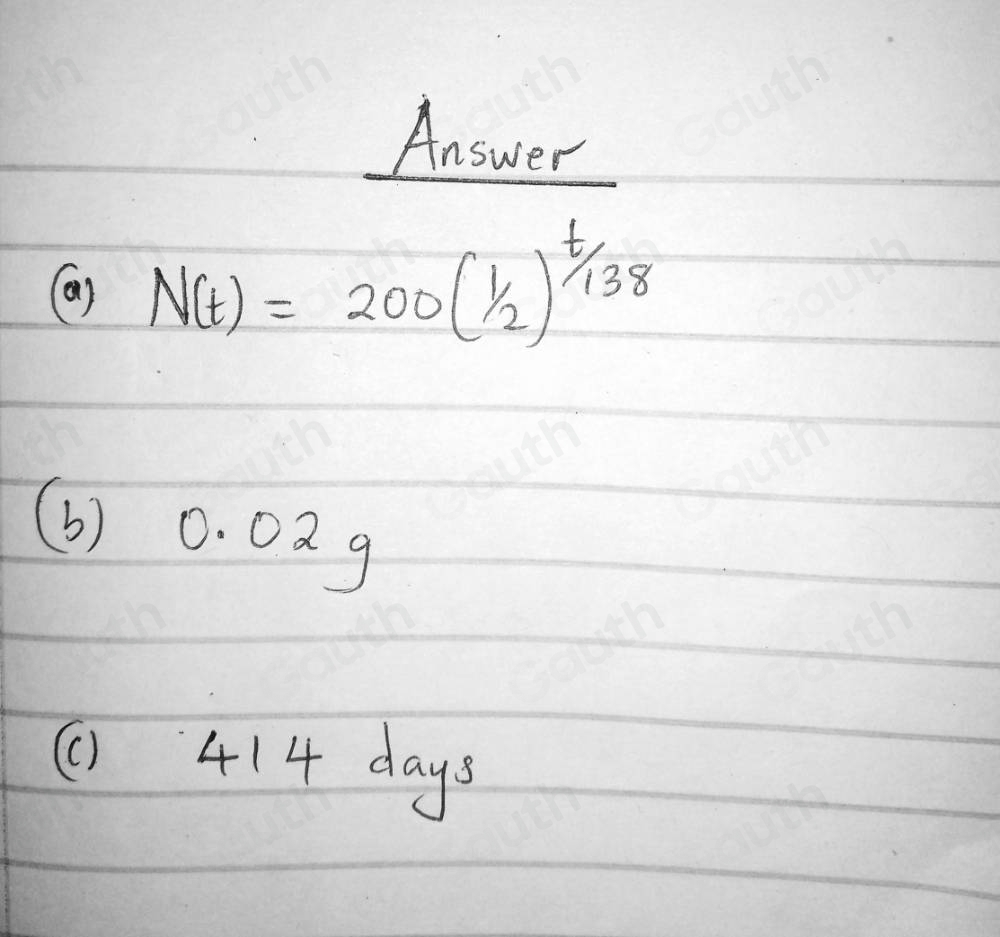 Answer
(a) N(t) = 200(1/2)^t/138
(b) 0.02 g
(c) 414 days